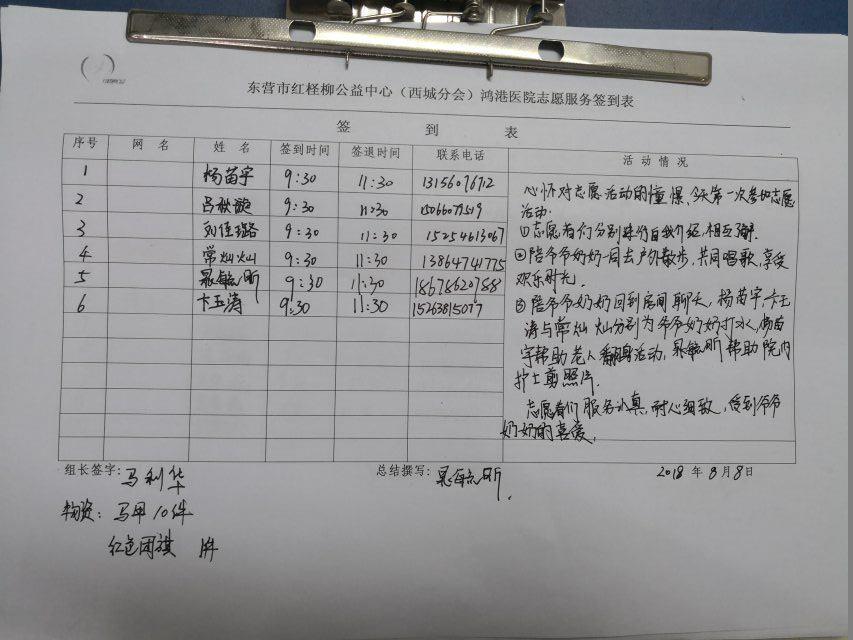 东营市红柽柳公益中心（西城分会）鸿港医院志愿服务签到表
签 到 表
序号 网 名 姓 名 签到时间 签退时间 联系电话 活 动 情 况
1 杨苗宇 9:30 11:30 13156076712
2 吕秋璇 9:30 11:30 15066077519
3 刘佳璐 9:30 11:30 15254613067
4 常灿灿 9:30 11:30 13864741775
5 晁毓昕 9:30 11:30 18678620788
6 卞玉涛 9:30 11:30 15263815077
心怀对志愿活动的憧憬,今天第一次参加志愿
活动.
①志愿者们分别进行自我介绍,相互了解.
②陪爷爷奶奶一同去户外散步,共同唱歌,享受
欢乐时光.
③陪爷爷奶奶回到房间聊天,杨苗宇,卞玉
涛与常灿灿分别为爷爷奶奶打水,杨苗
宇帮助老人翻身活动,晁毓昕帮助院内
护士剪照片.
志愿者们服务认真,耐心细致,受到爷爷
奶奶的喜爱.
组长签字:马利华 总结撰写:晁毓昕. 2018 年 8月8日
物资: 马甲10件
红色团旗